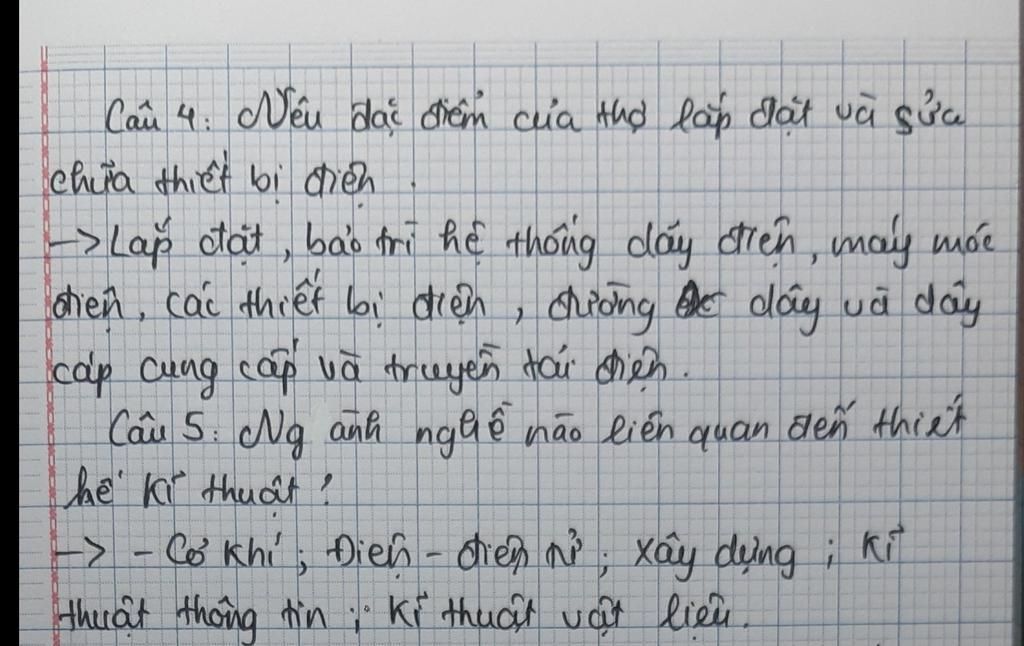 Câu 4: Nêu đặc điểm của thợ lắp đặt và sửa
chữa thiết bị điện.
-> Lắp đặt, bảo trì hệ thống dây điện, máy móc
điện, các thiết bị điện, đường dây và dây
cáp cung cấp và truyền tải điện.
Câu 5: Ng ành nghề nào liên quan đến thiết
kế kĩ thuật?
-> - Cơ khí; Điện - điện tử; xây dựng; kĩ
thuật thông tin; kĩ thuật vật liệu.